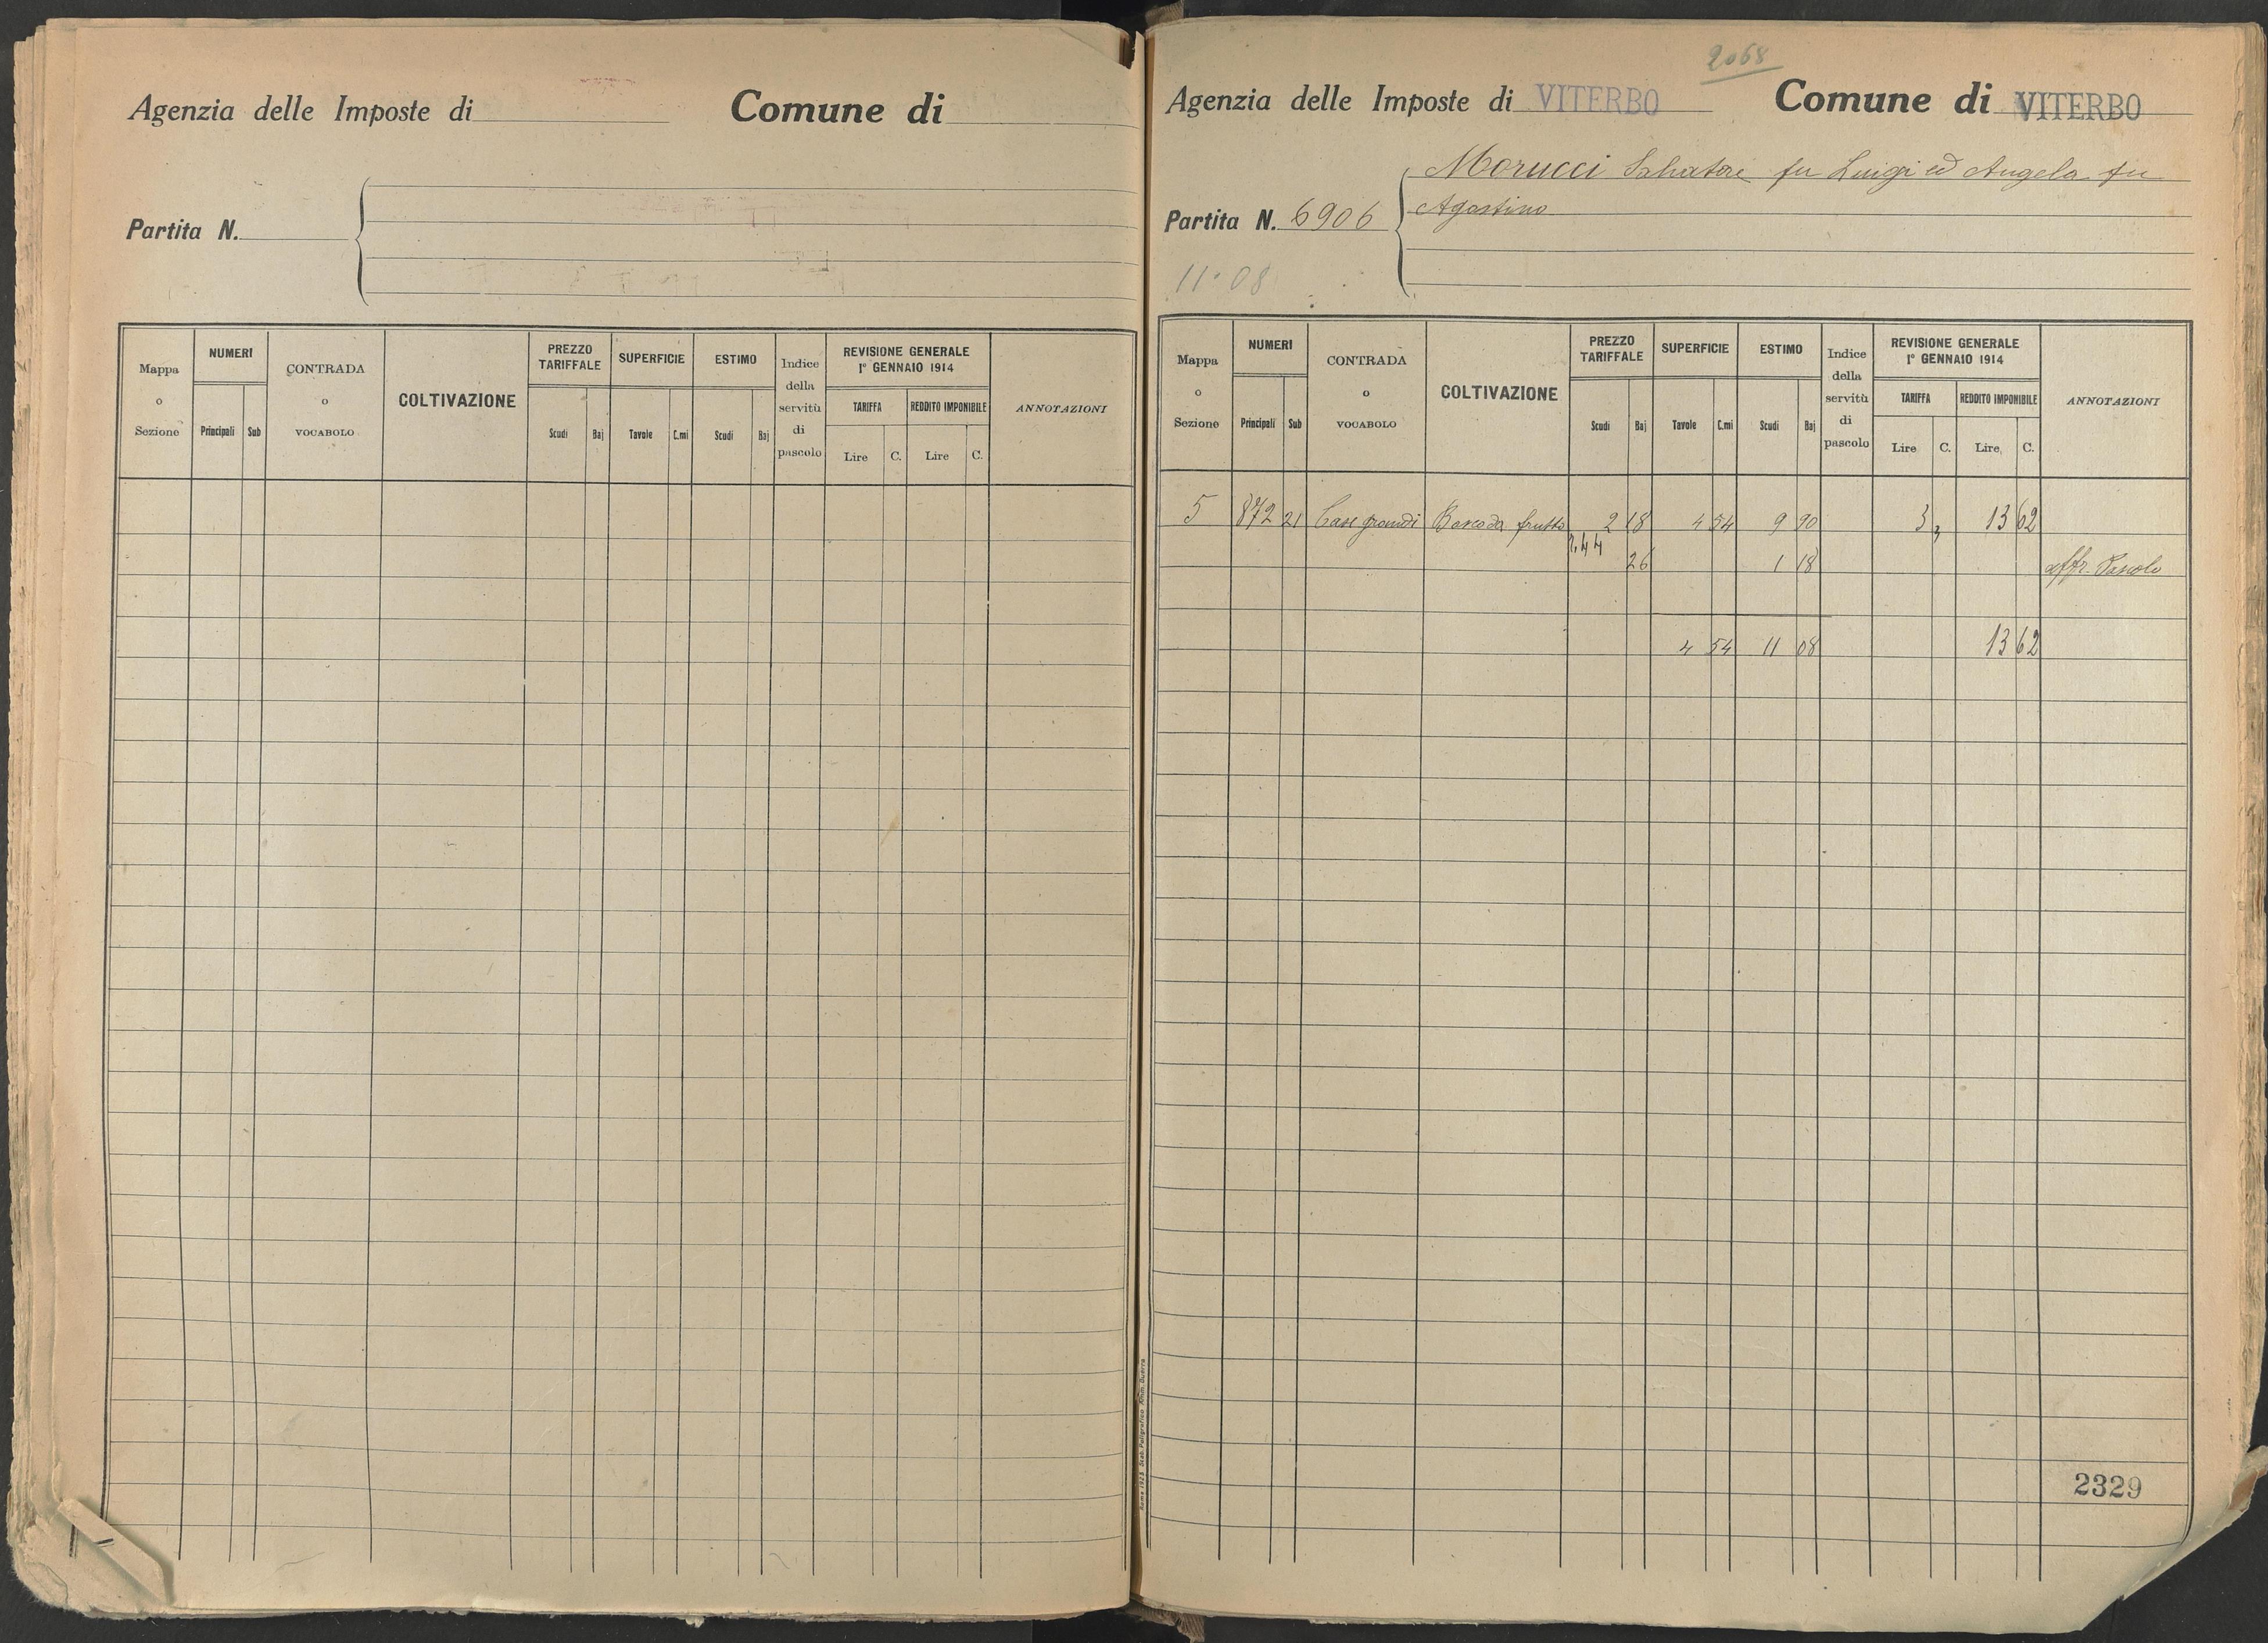 Agenzia delle Imposte di
Comune di
Partita N.
Mappa o Sezione
NUMERI
Principali
Sub
CONTRADA o VOCABOLO
COLTIVAZIONE
PREZZO TARIFFALE
Scudi
Baj
SUPERFICIE
Tavole
C.mi
ESTIMO
Scudi
Baj
Indice della servitù di pascolo
REVISIONE GENERALE 1° GENNAIO 1914
TARIFFA
Lire
C.
REDDITO IMPONIBILE
Lire
C.
ANNOTAZIONI
2068
Agenzia delle Imposte di VITERBO
Comune di VITERBO
Morucci Salvatore fu Luigi ed Angela fu
Partita N. 6906
Agostino
11.08
Mappa o Sezione
NUMERI
Principali
Sub
CONTRADA o VOCABOLO
COLTIVAZIONE
PREZZO TARIFFALE
Scudi
Baj
SUPERFICIE
Tavole
C.mi
ESTIMO
Scudi
Baj
Indice della servitù di pascolo
REVISIONE GENERALE 1° GENNAIO 1914
TARIFFA
Lire
C.
REDDITO IMPONIBILE
Lire
C.
ANNOTAZIONI
5 872 21 Case grandi Bosco da frutto 2 18 4 54 9 90 3 " 13 62
2,44
26 1 18 affr. Pascolo
4 54 11 08 13 62
2329